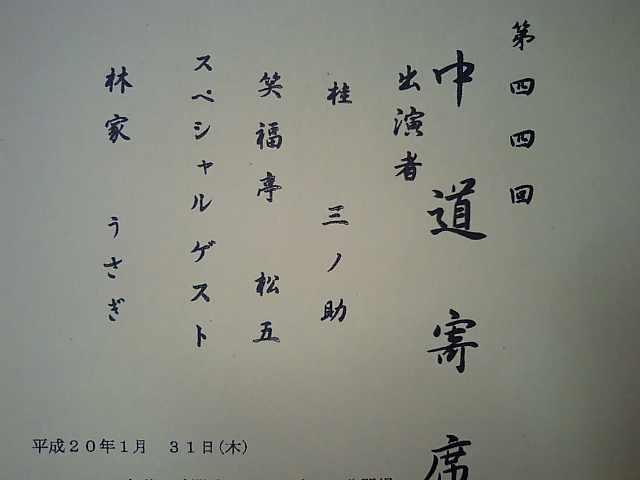 第四四回
中道寄席
出演者
桂 三ノ助
笑福亭 松五
スペシャルゲスト
林家 うさぎ
平成20年1月 31日(木)